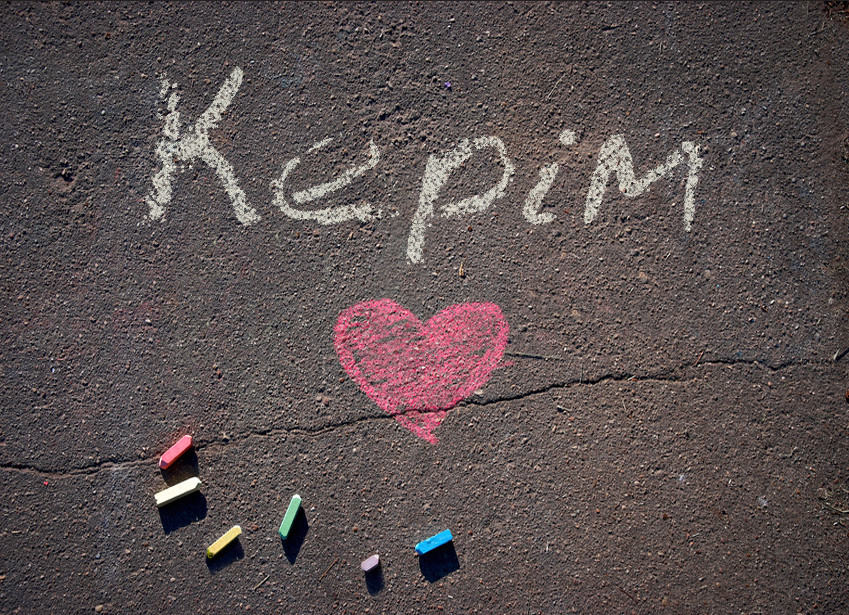 Керім